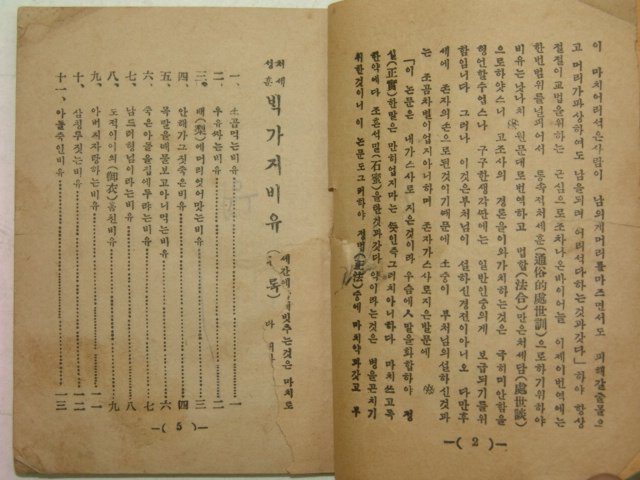 이 마치어리석은사람이 남의게머리를마즈면서도 피해갈줄몰으
고 머리가파상하여도 남을되며 어리석다하는것과갓다」하야 항상
절절이교법을위하는 근심으로조차나온바이어늘 이제이번역에는
한번범위를널피어서 통속적처세훈(通俗的處世訓)으로하기위하야
비유는낫낫치 원문대로번역하고 법합(法合)만은처세담(處世談)
으로하얏스니 고조사의 경론을이와가치하는것은 극히미안함을
형언할수업스나 구구한생각만에는 일반인중의게 보급되기를위
함임니다 그러나 이것은부처님이 설하신경전이아니오 다만후
세에 존자의손으로된것이기때문에 소중이 부처님의설하신것과
는 조곰차별이업지아니하며 존자가스사로지은발문에
「이 론문은 내가스사로 지은것이라 우슴에人말을화합하야 정
실(正實)한말은 만히업지마는 뜻인즉그러치아니하다 마치쓰고독
한약에다 조흔석밀(石蜜)을탄것과갓다 약이라는것은 병을곤치기
위한것이니 이 론문도그러하야 정법(正法)중에 마치약과갓고 우
—( 2 )—
처세
성훈 빅가지비유
세간에 빗추는것은 마치도
一、소곰먹는비유 一
二、우유짜는비유 二
三、배(梨)에머리엇어맛는비유 三
四、안해가그짓죽은비유 四
五、목말을때물보고아니먹는비유 六
六、죽은아들을집에두랴는비유 七
七、남드려형님이라는비유 八
八、도적이의(御衣)를훔친비유 九
九、아버지자랑하는비유 一一
十、삼칭루짓는비유 一二
十一、아들죽인비유 一三
—( 5 )—